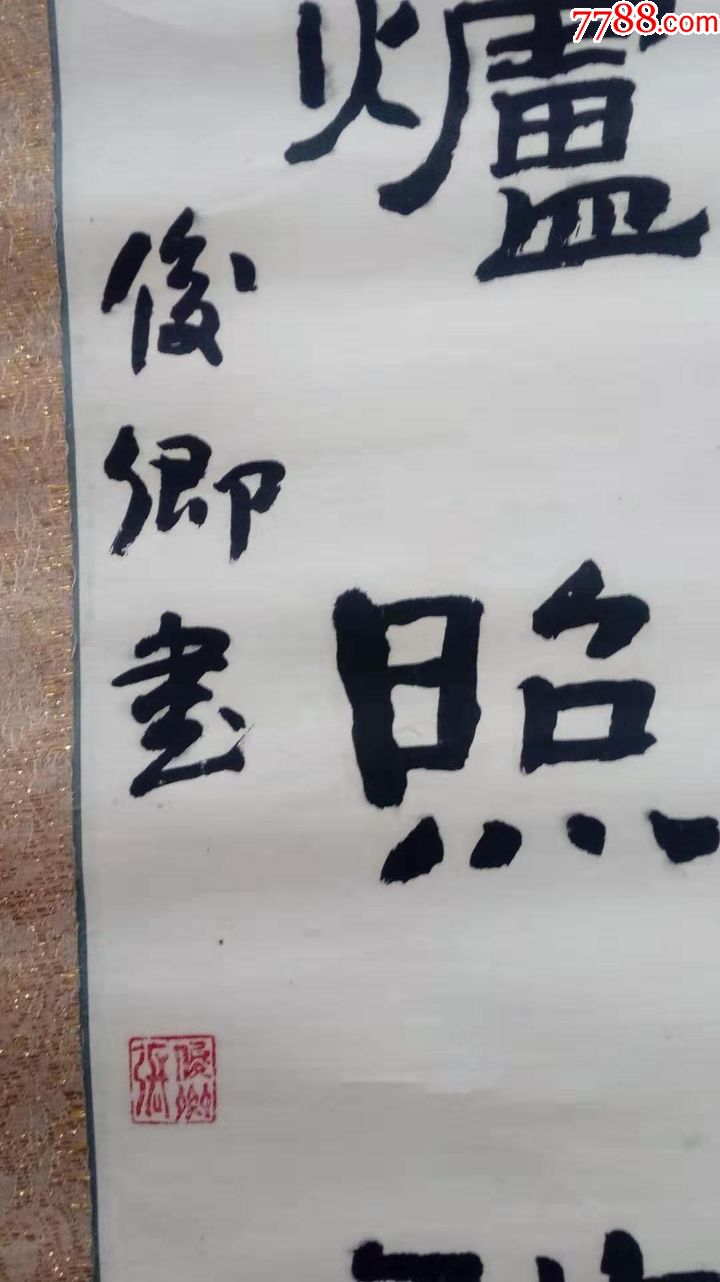 7788.com
爐照
俊卿書